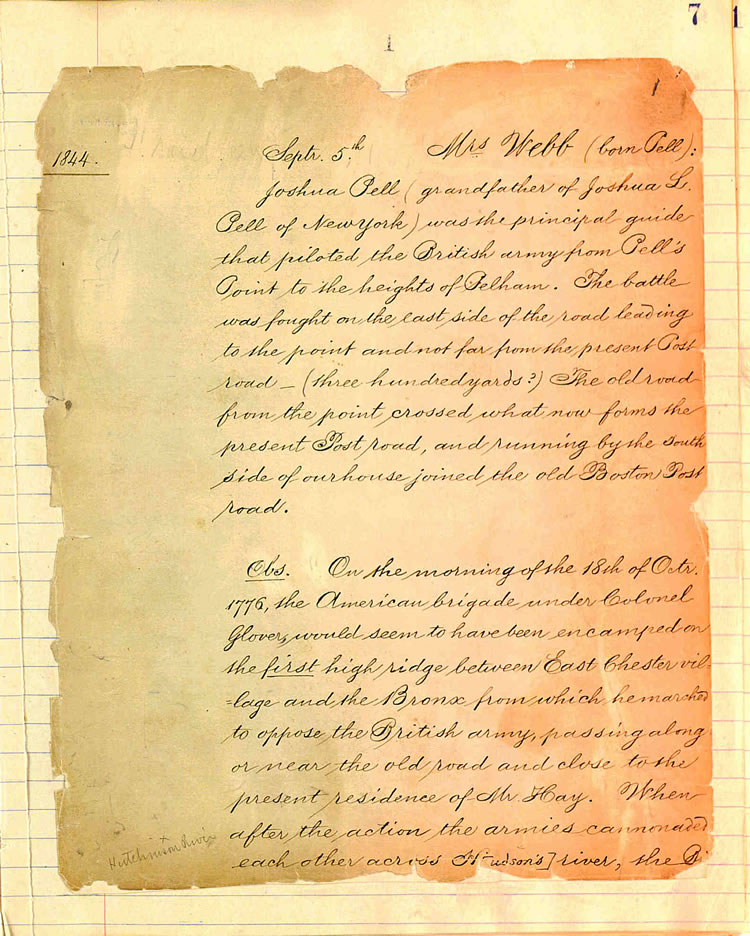 7 1
1
1
1844. Septr. 5th Mrs Webb (born Pell):
Joshua Pell (grandfather of Joshua L.
Pell of New York) was the principal guide
that piloted the British army from Pell's
Point to the heights of Pelham. The battle
was fought on the east side of the road leading
to the point and not far from the present Post
road – (three hundred yards?) The old road
from the point crossed what now forms the
present Post road, and running by the south
side of our house joined the old Boston Post
road.
Obs. On the morning of the 18th of Octr.
1776, the American brigade under Colonel
Glover, would seem to have been encamped on
the first high ridge between East Chester vil=
=lage and the Bronx from which he marched
to oppose the British army, passing along
or near the old road and close to the
present residence of Mr. Hay. When
after the action the armies cannonaded
each other across H[udson's] river, the B
Hutchinson